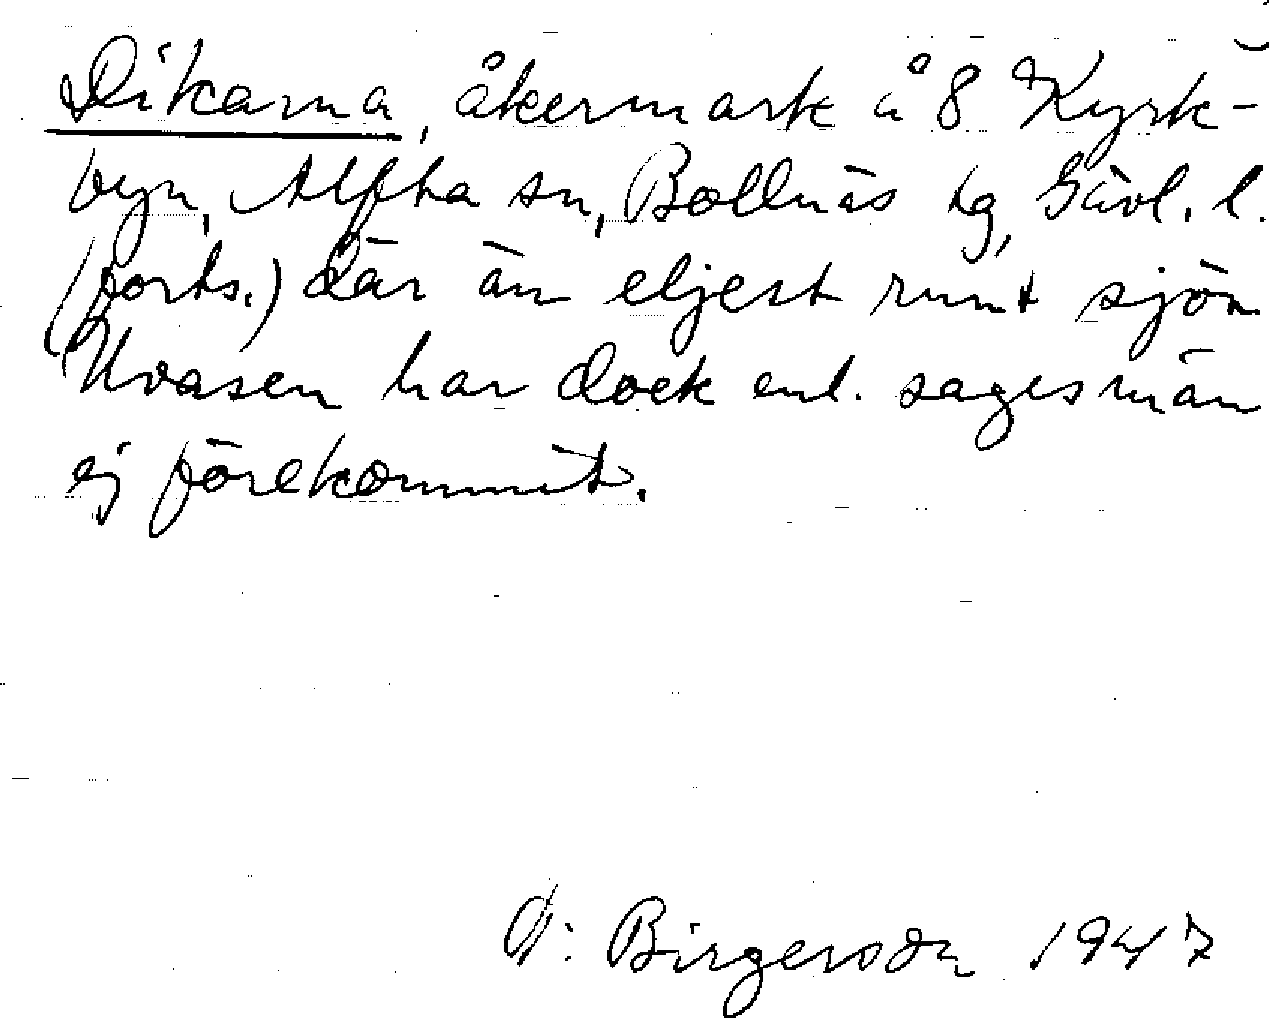 Dikarna, åkermark å 8 Kyrk-
byn, Alfta sn, Bollnäs tg, Gävl. l.
(forts.) där än eljest runt sjön
Kvasen har dock enl. sagesmän
ej förekommit.
Birgerson 1947